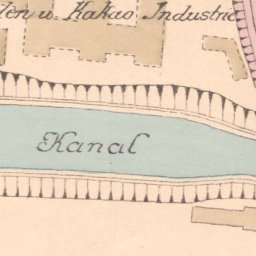 u. Kakao Industrie
Kanal